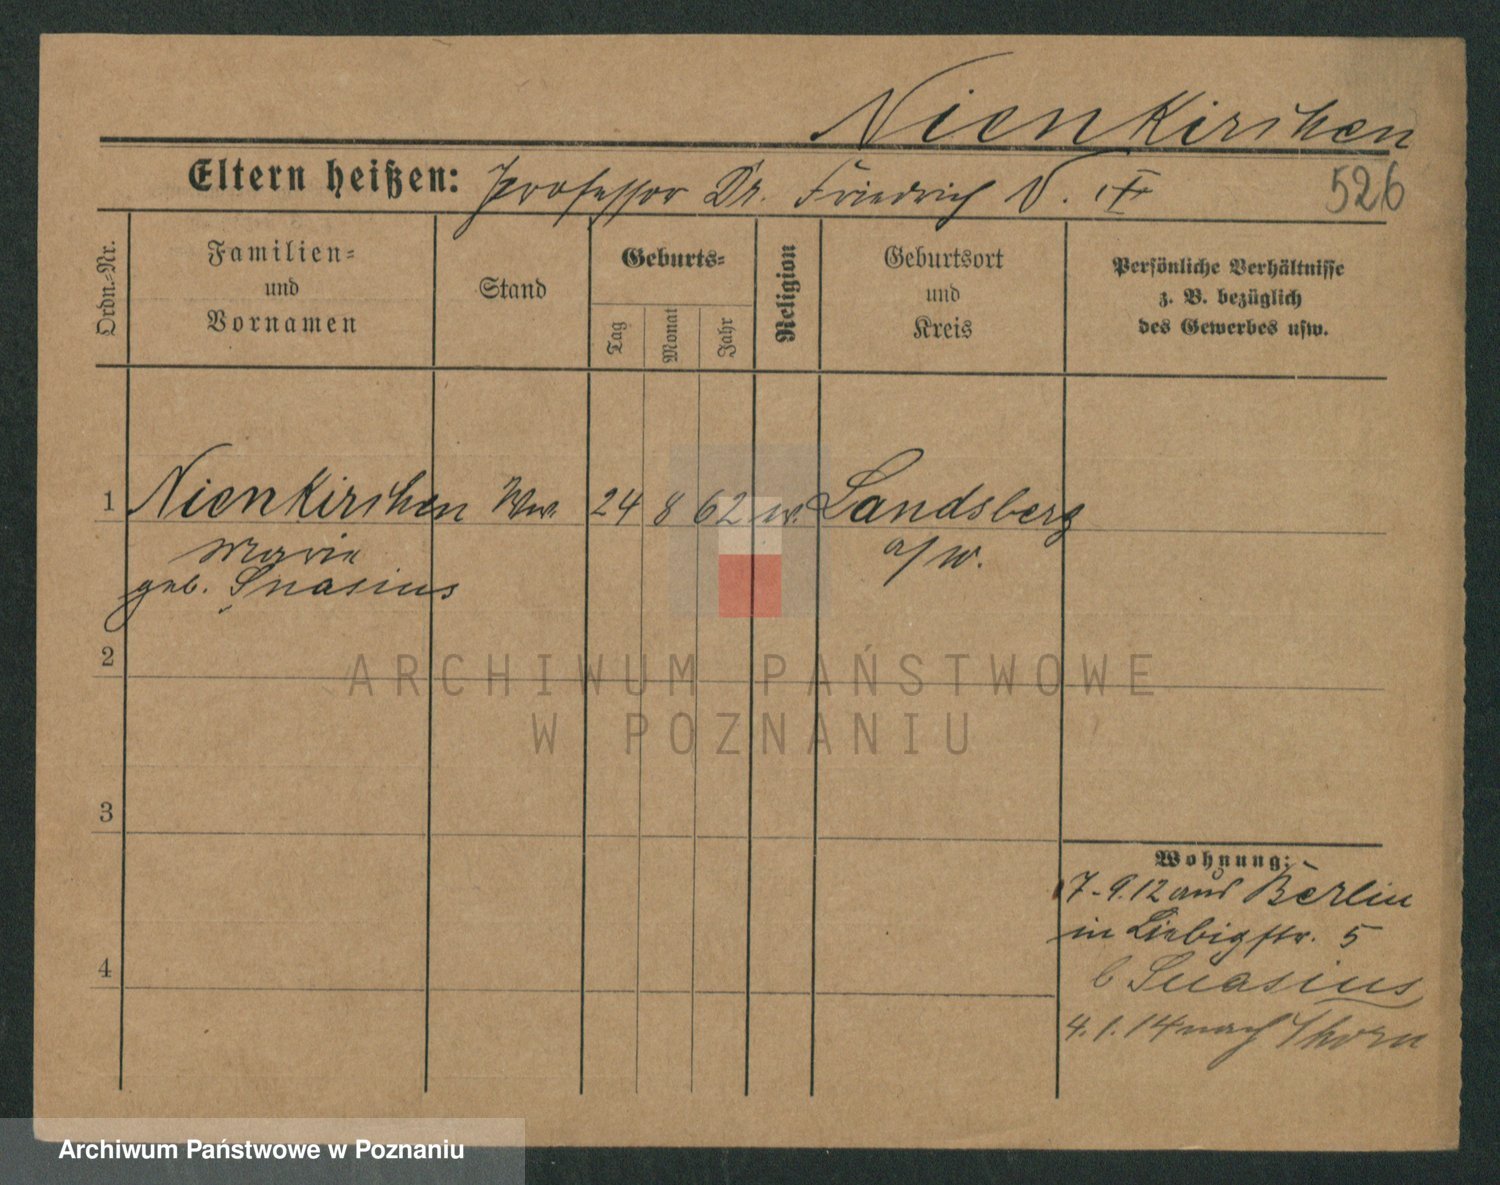 Nienkirchen
Eltern heißen: Professor Dr. Friedrich N. †
526
Ordn.-Nr.
Familien-
und
Vornamen
Stand
Geburts-
Tag
Monat
Jahr
Religion
Geburtsort
und
Kreis
Persönliche Verhältnisse
z. B. bezüglich
des Gewerbes usw.
1 Nienkirchen Ww. 24 8 62 Landsberg
Marie a/W.
geb. Suasius
2
3
4
Wohnung:
17-9.12 aus Berlin
in Liebigstr. 5
b Suasius
4.1.14 nach Thorn
ARCHIWUM PAŃSTWOWE
W POZNANIU
Archiwum Państwowe w Poznaniu